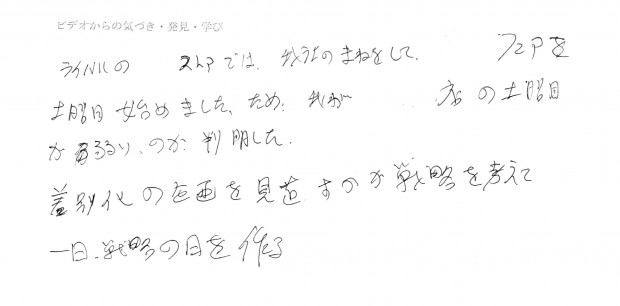 ビデオからの気づき・発見・学び
ライバルの ストアでは、我社のまねをして、 フェアを
土曜日 始めました、ため、我が 店の土曜日
が るい、のか 判明した。
差別化の企画を見直すのか戦略を考えて
一日、戦略の日を作る